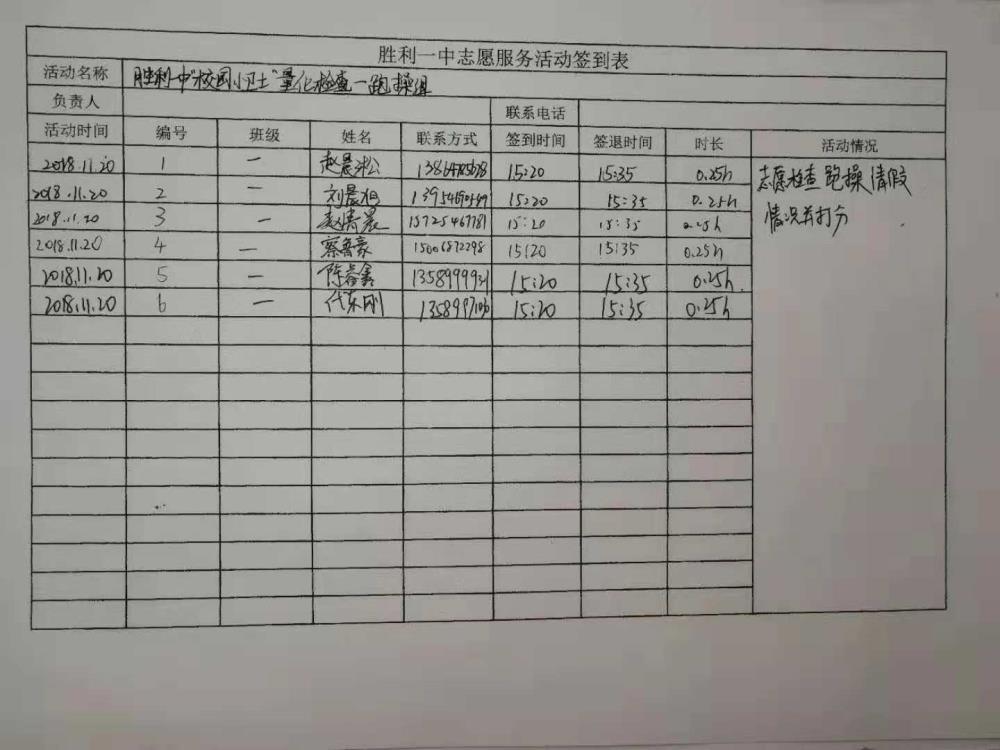 胜利一中志愿服务活动签到表
活动名称 胜利一中"校园小卫士"量化检查一跑操组
负责人 联系电话
活动时间 编号 班级 姓名 联系方式 签到时间 签退时间 时长 活动情况
2018.11.20 1 一 赵晨淞 15:20 15:35 0.25h 志愿检查跑操请假
2018.11.20 2 一 刘晨旭 15:20 15:35 0.25h 情况并打分
2018.11.20 3 一 15725467781 15:20 15:35 0.25h
2018.11.20 4 一 蔡鲁豪 15006872298 15:20 15:35 0.25h
2018.11.20 5 一 陈春鑫 1358999931 15:20 15:35 0.25h
2018.11.20 6 一 代东刚 15:20 15:35 0.25h